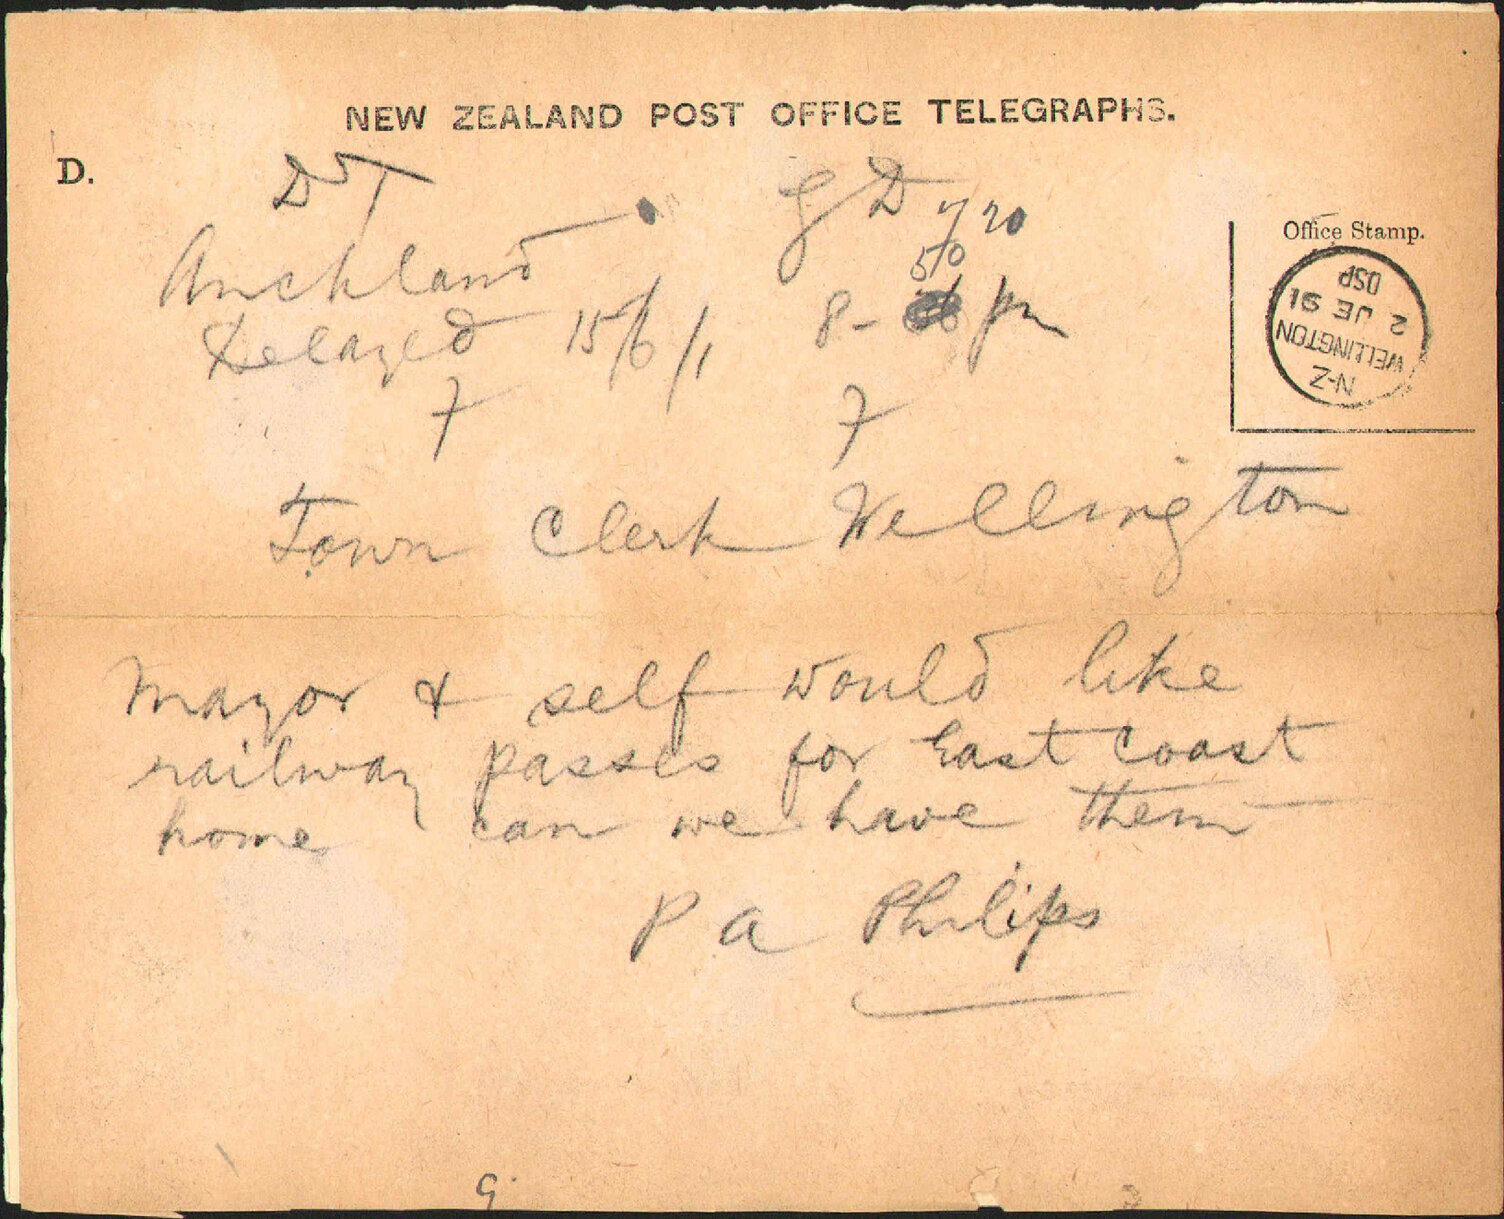 NEW ZEALAND POST OFFICE TELEGRAPHS.
D.
DT GD
Auckland 7/20
50
Delayed 15/6/1 8- pm
7 7
Office Stamp.
N-Z
WELLINGTON
2 JE 91
DSP
Town Clerk Wellington
Mayor & self would like
railway passes for East Coast
home can we have them
P A Philips